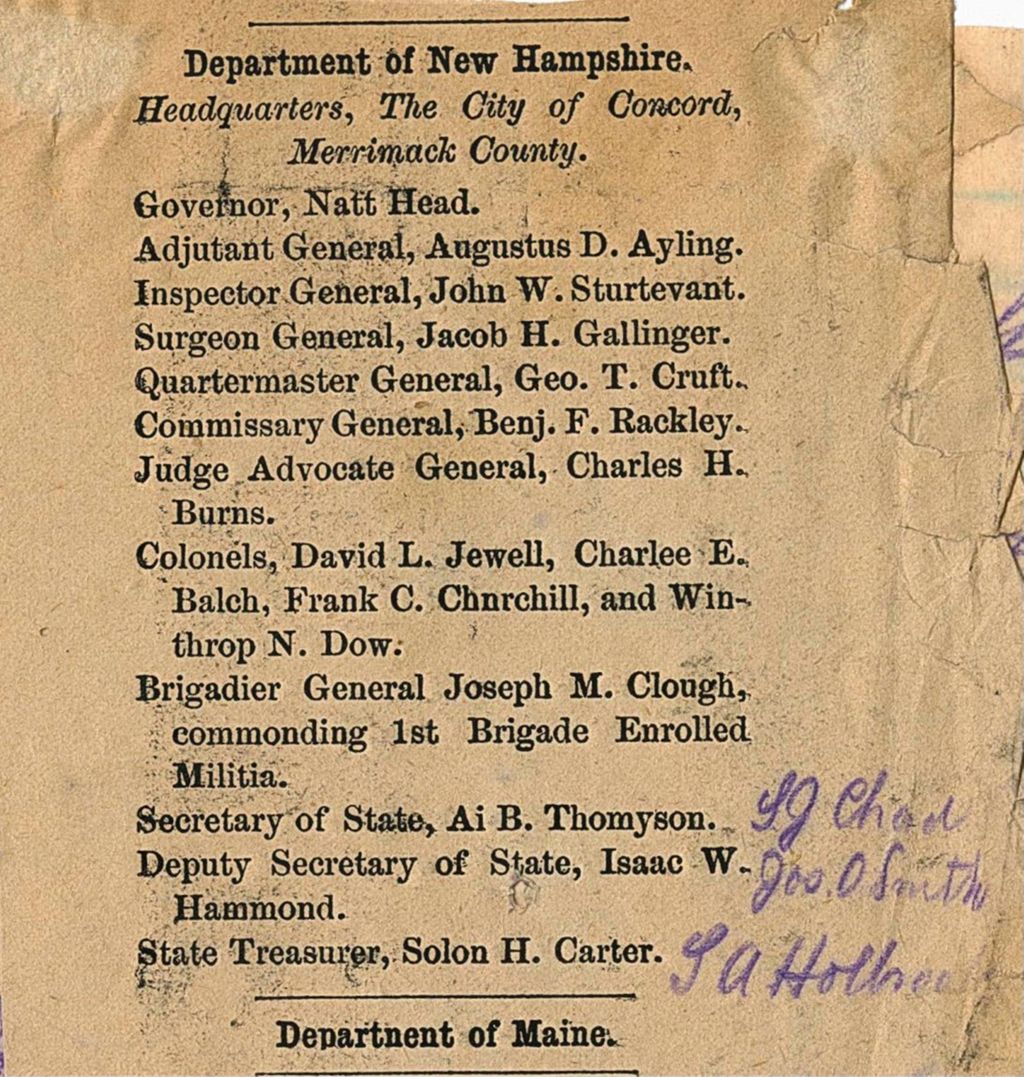 Department of New Hampshire.
Headquarters, The City of Concord,
Merrimack County.
Governor, Natt Head.
Adjutant General, Augustus D. Ayling.
Inspector General, John W. Sturtevant.
Surgeon General, Jacob H. Gallinger.
Quartermaster General, Geo. T. Cruft.
Commissary General, Benj. F. Rackley.
Judge Advocate General, Charles H.
Burns.
Colonels, David L. Jewell, Charlee E.
Balch, Frank C. Chnrchill, and Win-
throp N. Dow.
Brigadier General Joseph M. Clough,
commonding 1st Brigade Enrolled
Militia.
Secretary of State, Ai B. Thomyson. Chad
Deputy Secretary of State, Isaac W. Jos. O Smith
Hammond.
State Treasurer, Solon H. Carter. S A
Departnent of Maine.